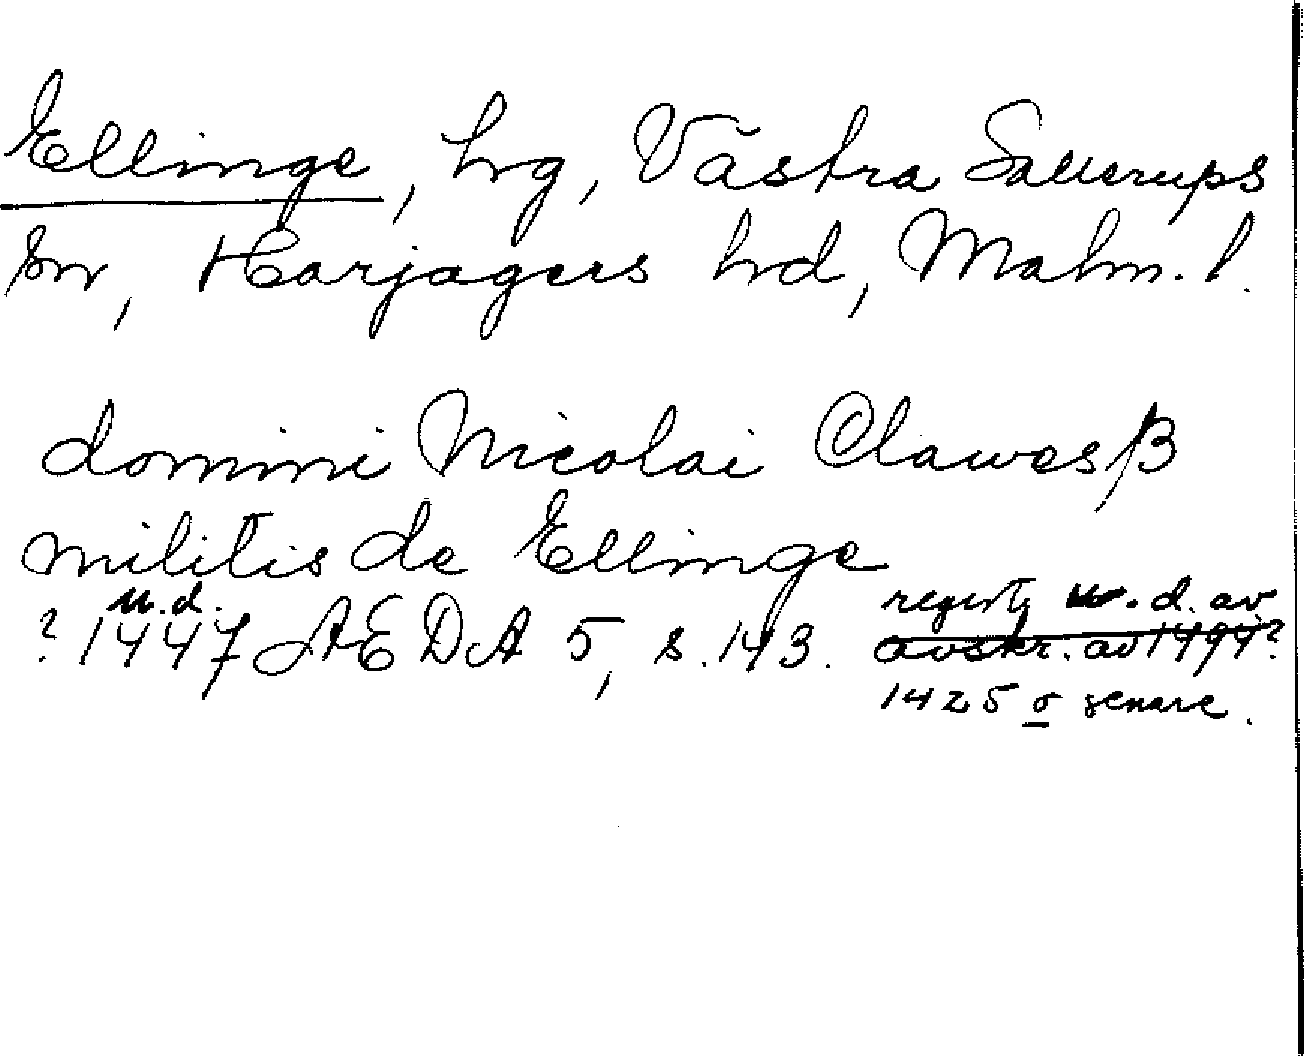 Ellinge, hrg, Västra Sallerups
sn, Harjagers hd, Malm. l.
domini Nicolai Clawesß
militis de Ellinge
u.d.
? 1447 ÆDA 5, s. 143.
registr u. d. av
avskr. av 1494?
1425 o senare.